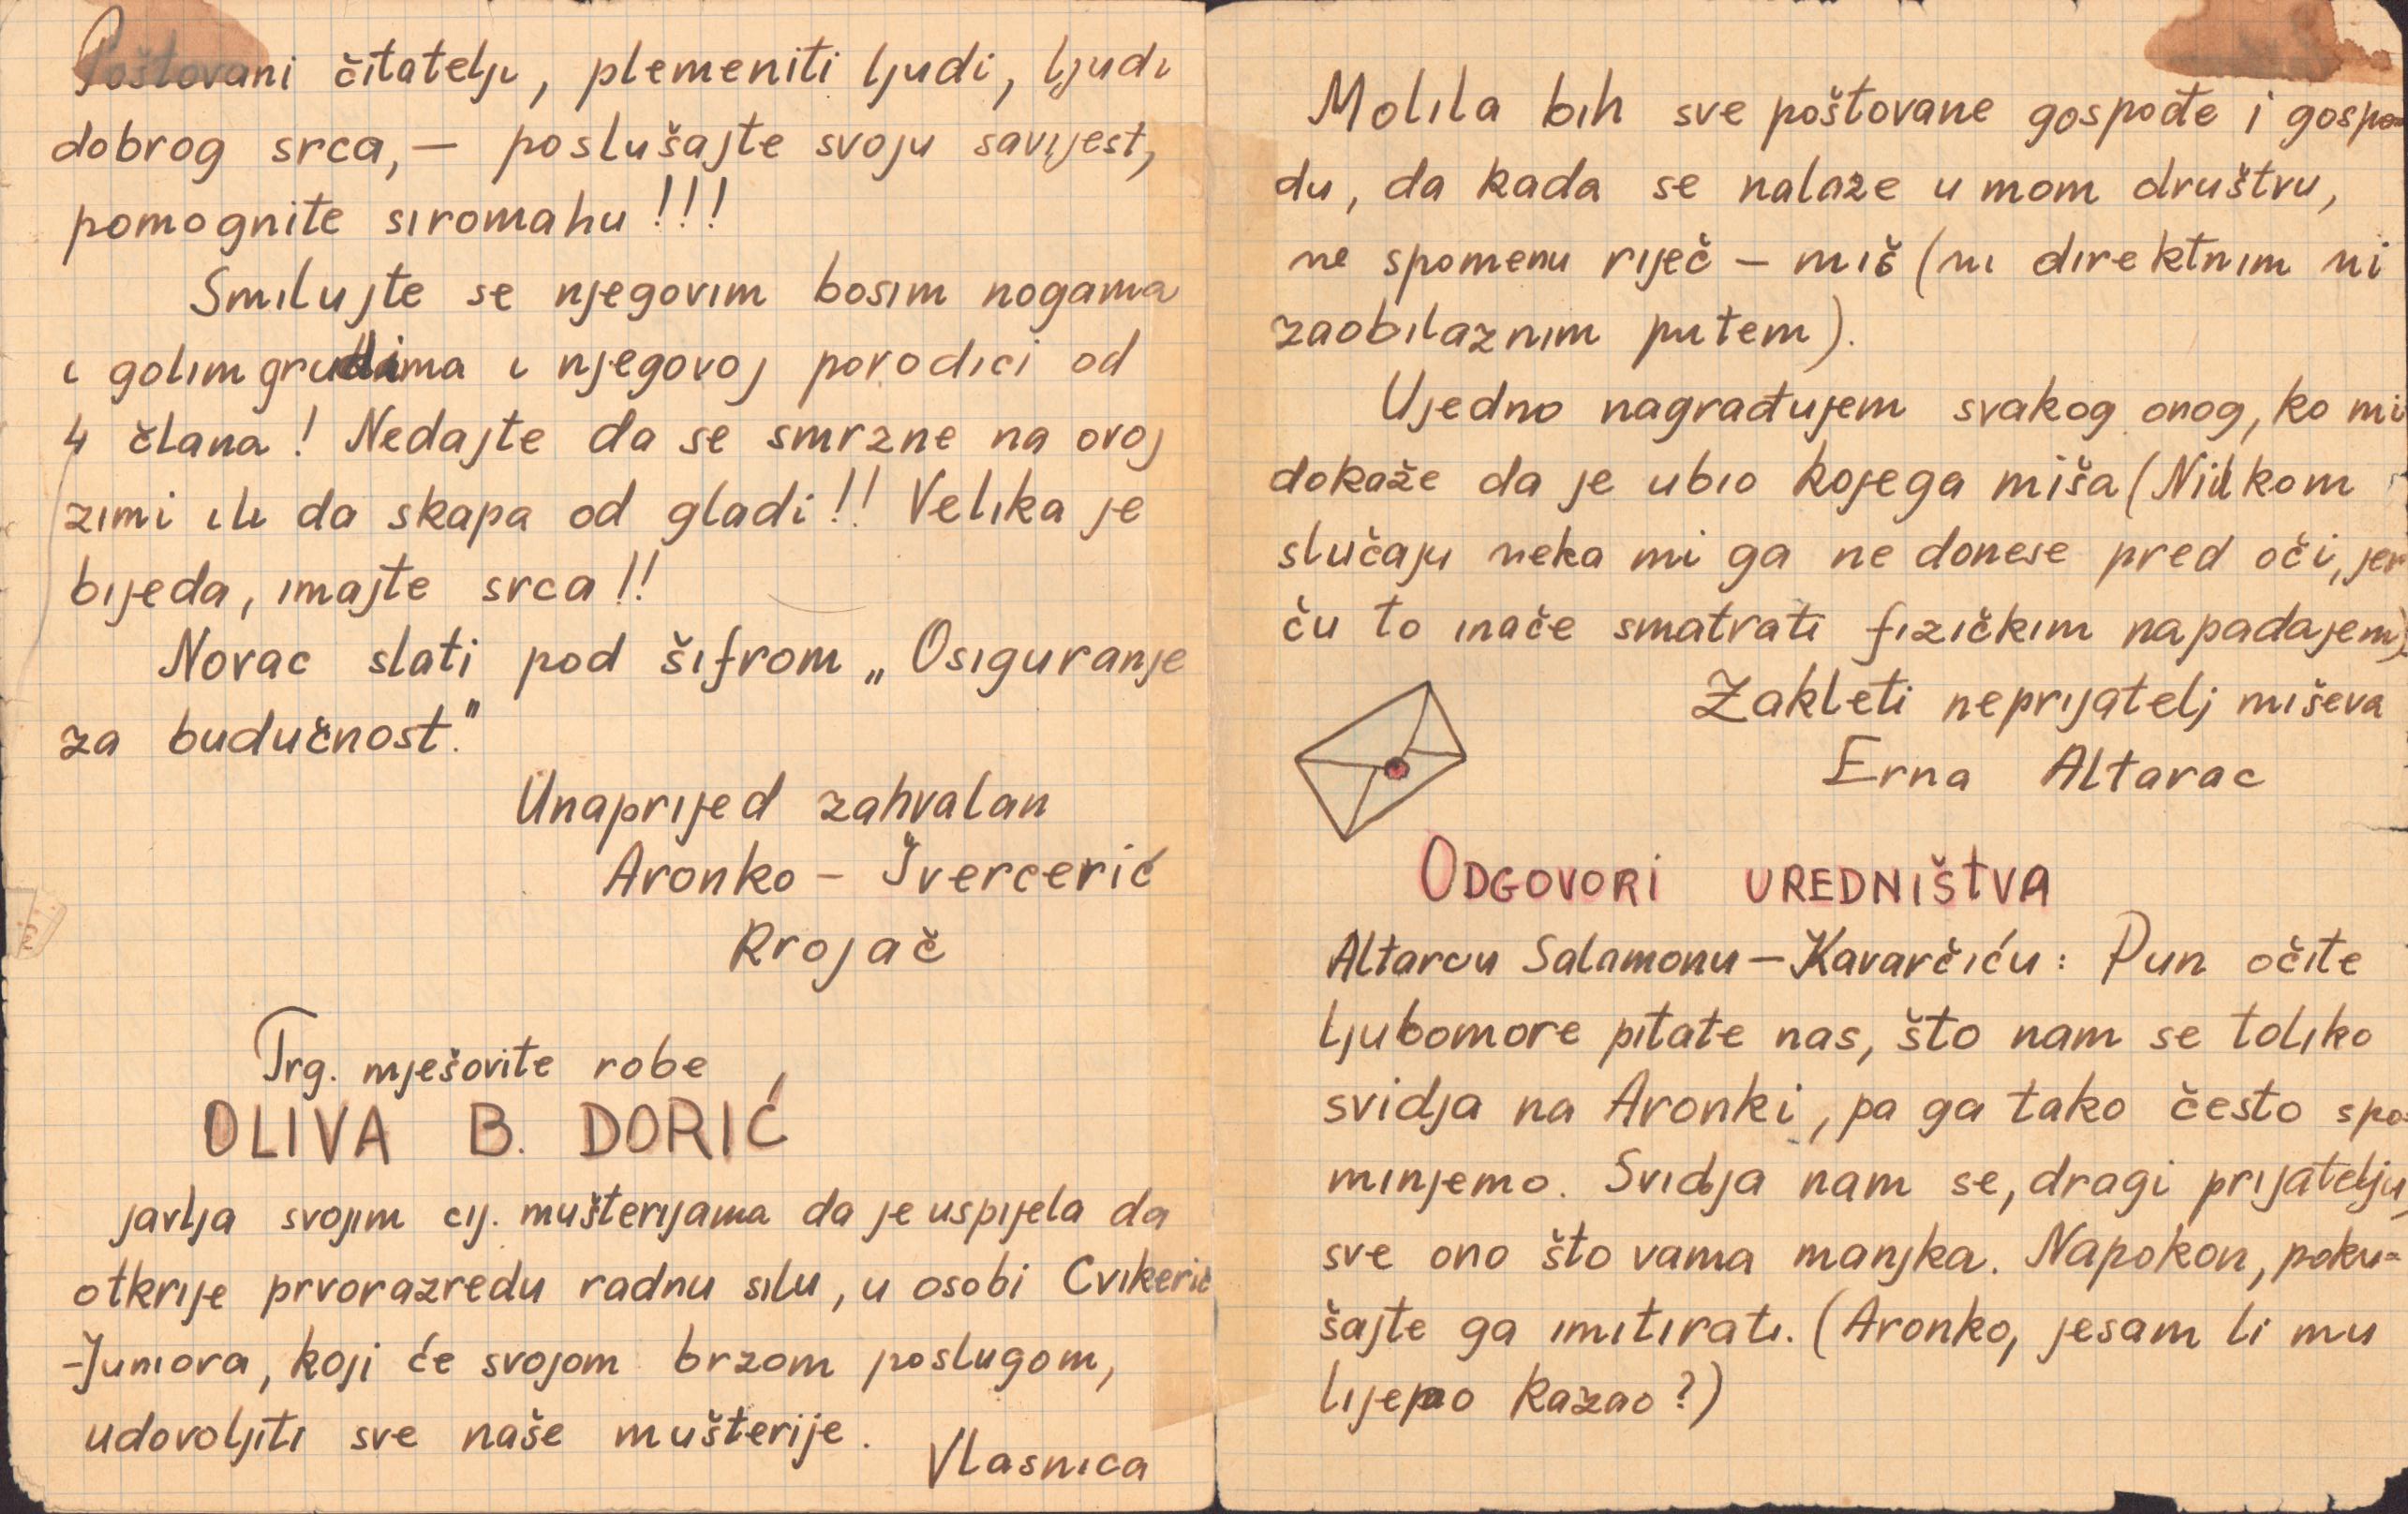 Poštovani čitatelji, plemeniti ljudi, ljudi
dobrog srca, — poslušajte svoju savijest,
pomognite siromahu!!!
Smilujte se njegovim bosim nogama
i golim grudima i njegovoj porodici od
4 člana! Nedajte da se smrzne na ovoj
zimi ili da skapa od gladi!! Velika je
bijeda, imajte srca!!
Novac slati pod šifrom „Osiguranje
za budučnost."
Unaprijed zahvalan
Aronko - Ivercerić
Krojač
Trg. mješovite robe
OLIVA B. DORIĆ
javlja svojim cij. mušterijama da je uspijela da
otkrije prvorazredu radnu silu, u osobi Cvikerić
-Juniora, koji će svojom brzom poslugom,
udovoljiti sve naše mušterije.
Vlasnica
Molila bih sve poštovane gospođe i gospo-
du, da kada se nalaze u mom društvu,
ne spomenu riječ - miš (ni direktnim ni
zaobilaznim putem).
Ujedno nagrađujem svakog onog, ko mi
dokaže da je ubio kojega miša (Nikkom
slučaju neka mi ga ne donese pred oči, jer
ču to inače smatrati fizičkim napadajem)
Zakleti neprijatelj miševa
Erna Altarac
ODGOVORI UREDNIŠTVA
Altarcu Salamonu - Kavarčiću: Pun očite
ljubomore pitate nas, što nam se toliko
svidja na Aronki, pa ga tako često spo-
minjemo. Svidja nam se, dragi prijatelju,
sve ono što vama manjka. Napokon, poku=
šajte ga imitirati. (Aronko, jesam li mu
lijepo kazao?)